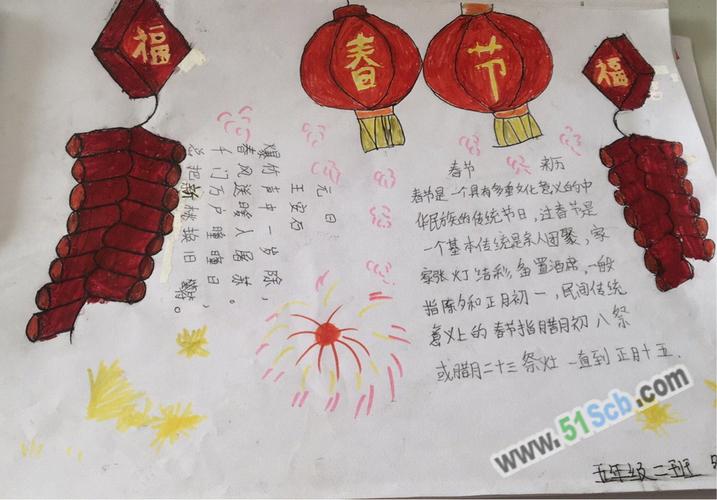 福
春 节
福
元日
王安石
爆竹声中一岁除,
春风送暖入屠苏。
千门万户瞳瞳日,
总把新桃换旧。
春节 来历
春节是一个具有多重文化意义的中
华民族的传统节日,过春节是
一个基本传统是亲人团聚,家
家张灯结彩,备置酒席,一般
指除夕和正月初一,民间传统
意义上的春节指腊月初八祭
或腊月二十三祭灶 一直到正月十五.
www.51Scb.com
五年级二班